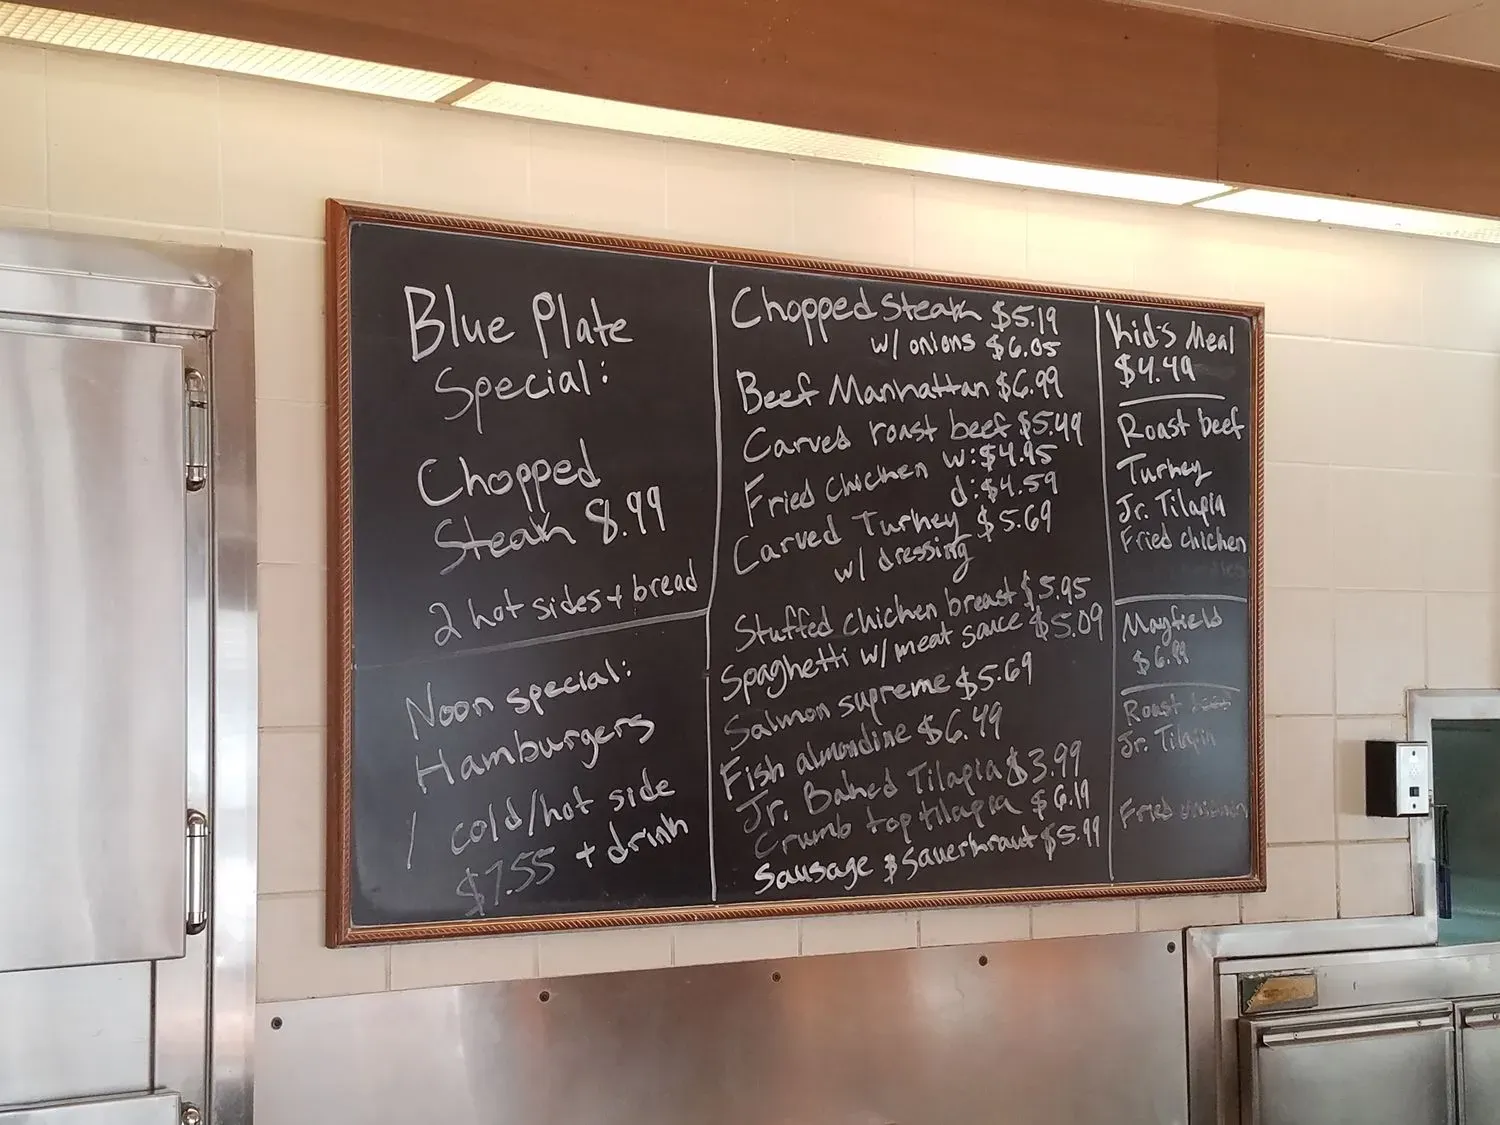 Blue Plate
Special:
Chopped
Steak 8.99
2 hot sides + bread
Noon special:
Hamburgers
1 cold/hot side
$7.55 + drink
Chopped Steak $5.19
w/ onions $6.05
Beef Manhattan $6.99
Carved roast beef $5.49
Fried chicken w: $4.95
d: $4.59
Carved Turkey $5.69
w/ dressing
Stuffed chicken breast $5.95
Spaghetti w/ meat sauce $5.09
Salmon supreme $5.69
Fish almondine $6.49
Jr. Baked Tilapia $3.99
Crumb top tilapia $6.19
Sausage & Sauerkraut $5.99
Kid's Meal
$4.49
Roast beef
Turkey
Jr. Tilapia
Fried chicken
Mayfield
$6.99
Roast beef
Jr. Tilapia
Fried chicken